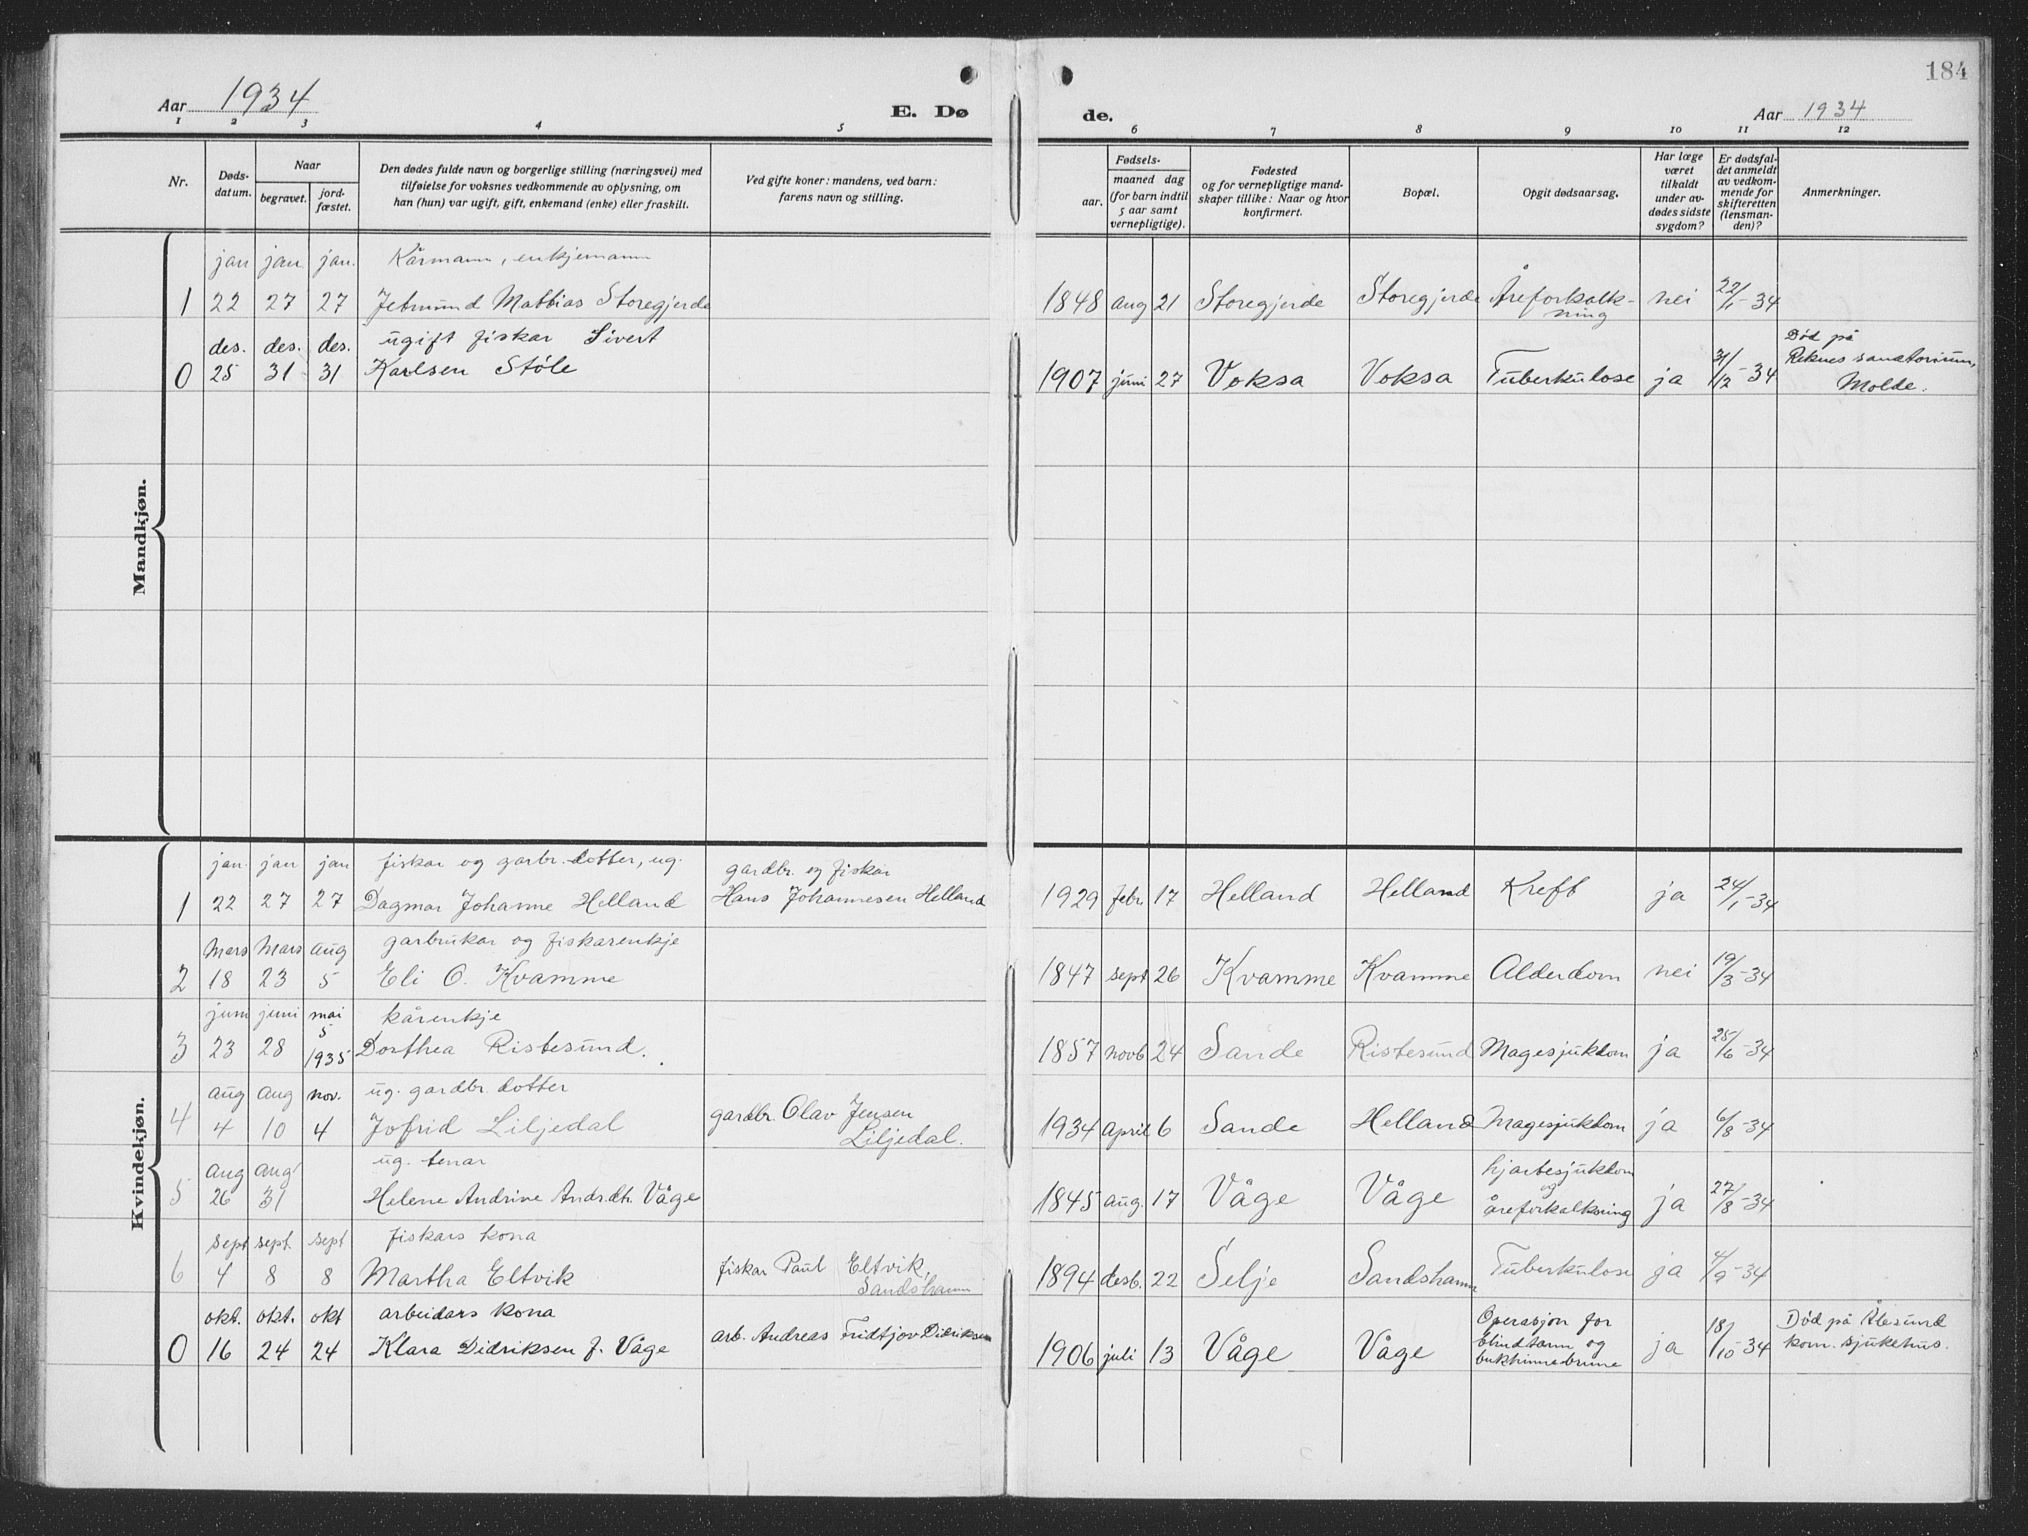 184
Aar 1934
E. Døde.
Aar 1934
1 2 3 4 5 6 7 8 9 10 11 12
Nr.
Døds-
datum.
Naar
begravet.
jord-
fæstet.
Den dødes fulde navn og borgerlige stilling (næringsvei) med
tilføielse for voksnes vedkommende av oplysning, om
han (hun) var ugift, gift, enkemand (enke) eller fraskilt.
Ved gifte koner: mandens, ved barn:
farens navn og stilling.
Fødsels-
aar.
maaned dag
(for barn indtil
5 aar samt
vernepligtige).
Fødested
og for vernepligtige mand-
skaper tillike: Naar og hvor
konfirmert.
Bopæl.
Opgit dødsaarsag.
Har læge
været
tilkaldt
under av-
dødes sidste
sygdom?
Er dødsfal-
det anmeldt
av vedkom-
mende for
skifteretten
(lensman-
den)?
Anmerkninger.
Mandkjøn.
jan jan jan. Kårmann, enkjemann
1 22 27 27 Jetmund Mattias Storegjerde 1848 aug 21 Storegjerde Storegjerde Åreforkalk- nei 22/1-34
ning
des. des. des. ugift fiskar Sivert
0 25 31 31 Karlsen Støle 1907 juni 27 Voksa Voksa Tuberkulose ja 31/12-34
Død på
Reknes sanatorium,
Molde.
Kvindekjøn.
jan. jan jan fiskar og garbr. dotter, ug. gardbr. og fiskar
1 22 27 27 Dagmar Johanne Helland Hans Johannesen Helland 1929 febr. 17 Helland Helland Kreft ja 24/1-34
Mars Mars aug garbrukar og fiskarenkje
2 18 23 5 Eli O. Kvamme 1847 sept 26 Kvamme Kvamme Alderdom nei 19/3-34
juni juni mai kårenkje
5
3 23 28 1935 Dorthea Ristesund. 1857 novb 24 Sande Ristesund Magesjukdom ja 25/6-34
aug aug nov. ug. gardbr dotter
4 4 10 4 Jofrid Liljedal gardbr. Olav Jensen
Liljedal. 1934 april 6 Sande Helland Magesjukdom ja 6/8-34
aug aug ug. tenar
5 26 31 Helene Andrine Andr.dt. Våge 1845 aug. 17 Våge Våge hjartesjukdom
og
åreforkalkning ja 27/8-34
sept sept. sept fiskars kona
6 4 8 8 Martha Eltvik fiskar Paul Eltvik,
Sandshamn 1894 desb. 22 Selje Sandshamn Tuberkulose ja 4/9-34
okt. okt. okt arbeidars kona
0 16 24 24 Klara Didriksen f. Våge arb. Andreas Fridtjov Didriksen 1906 juli 13 Våge Våge Operasjon for
blindtarm og
bukhinnebrune ja 18/10-34 Død på Ålesund
kom. sjukehus.